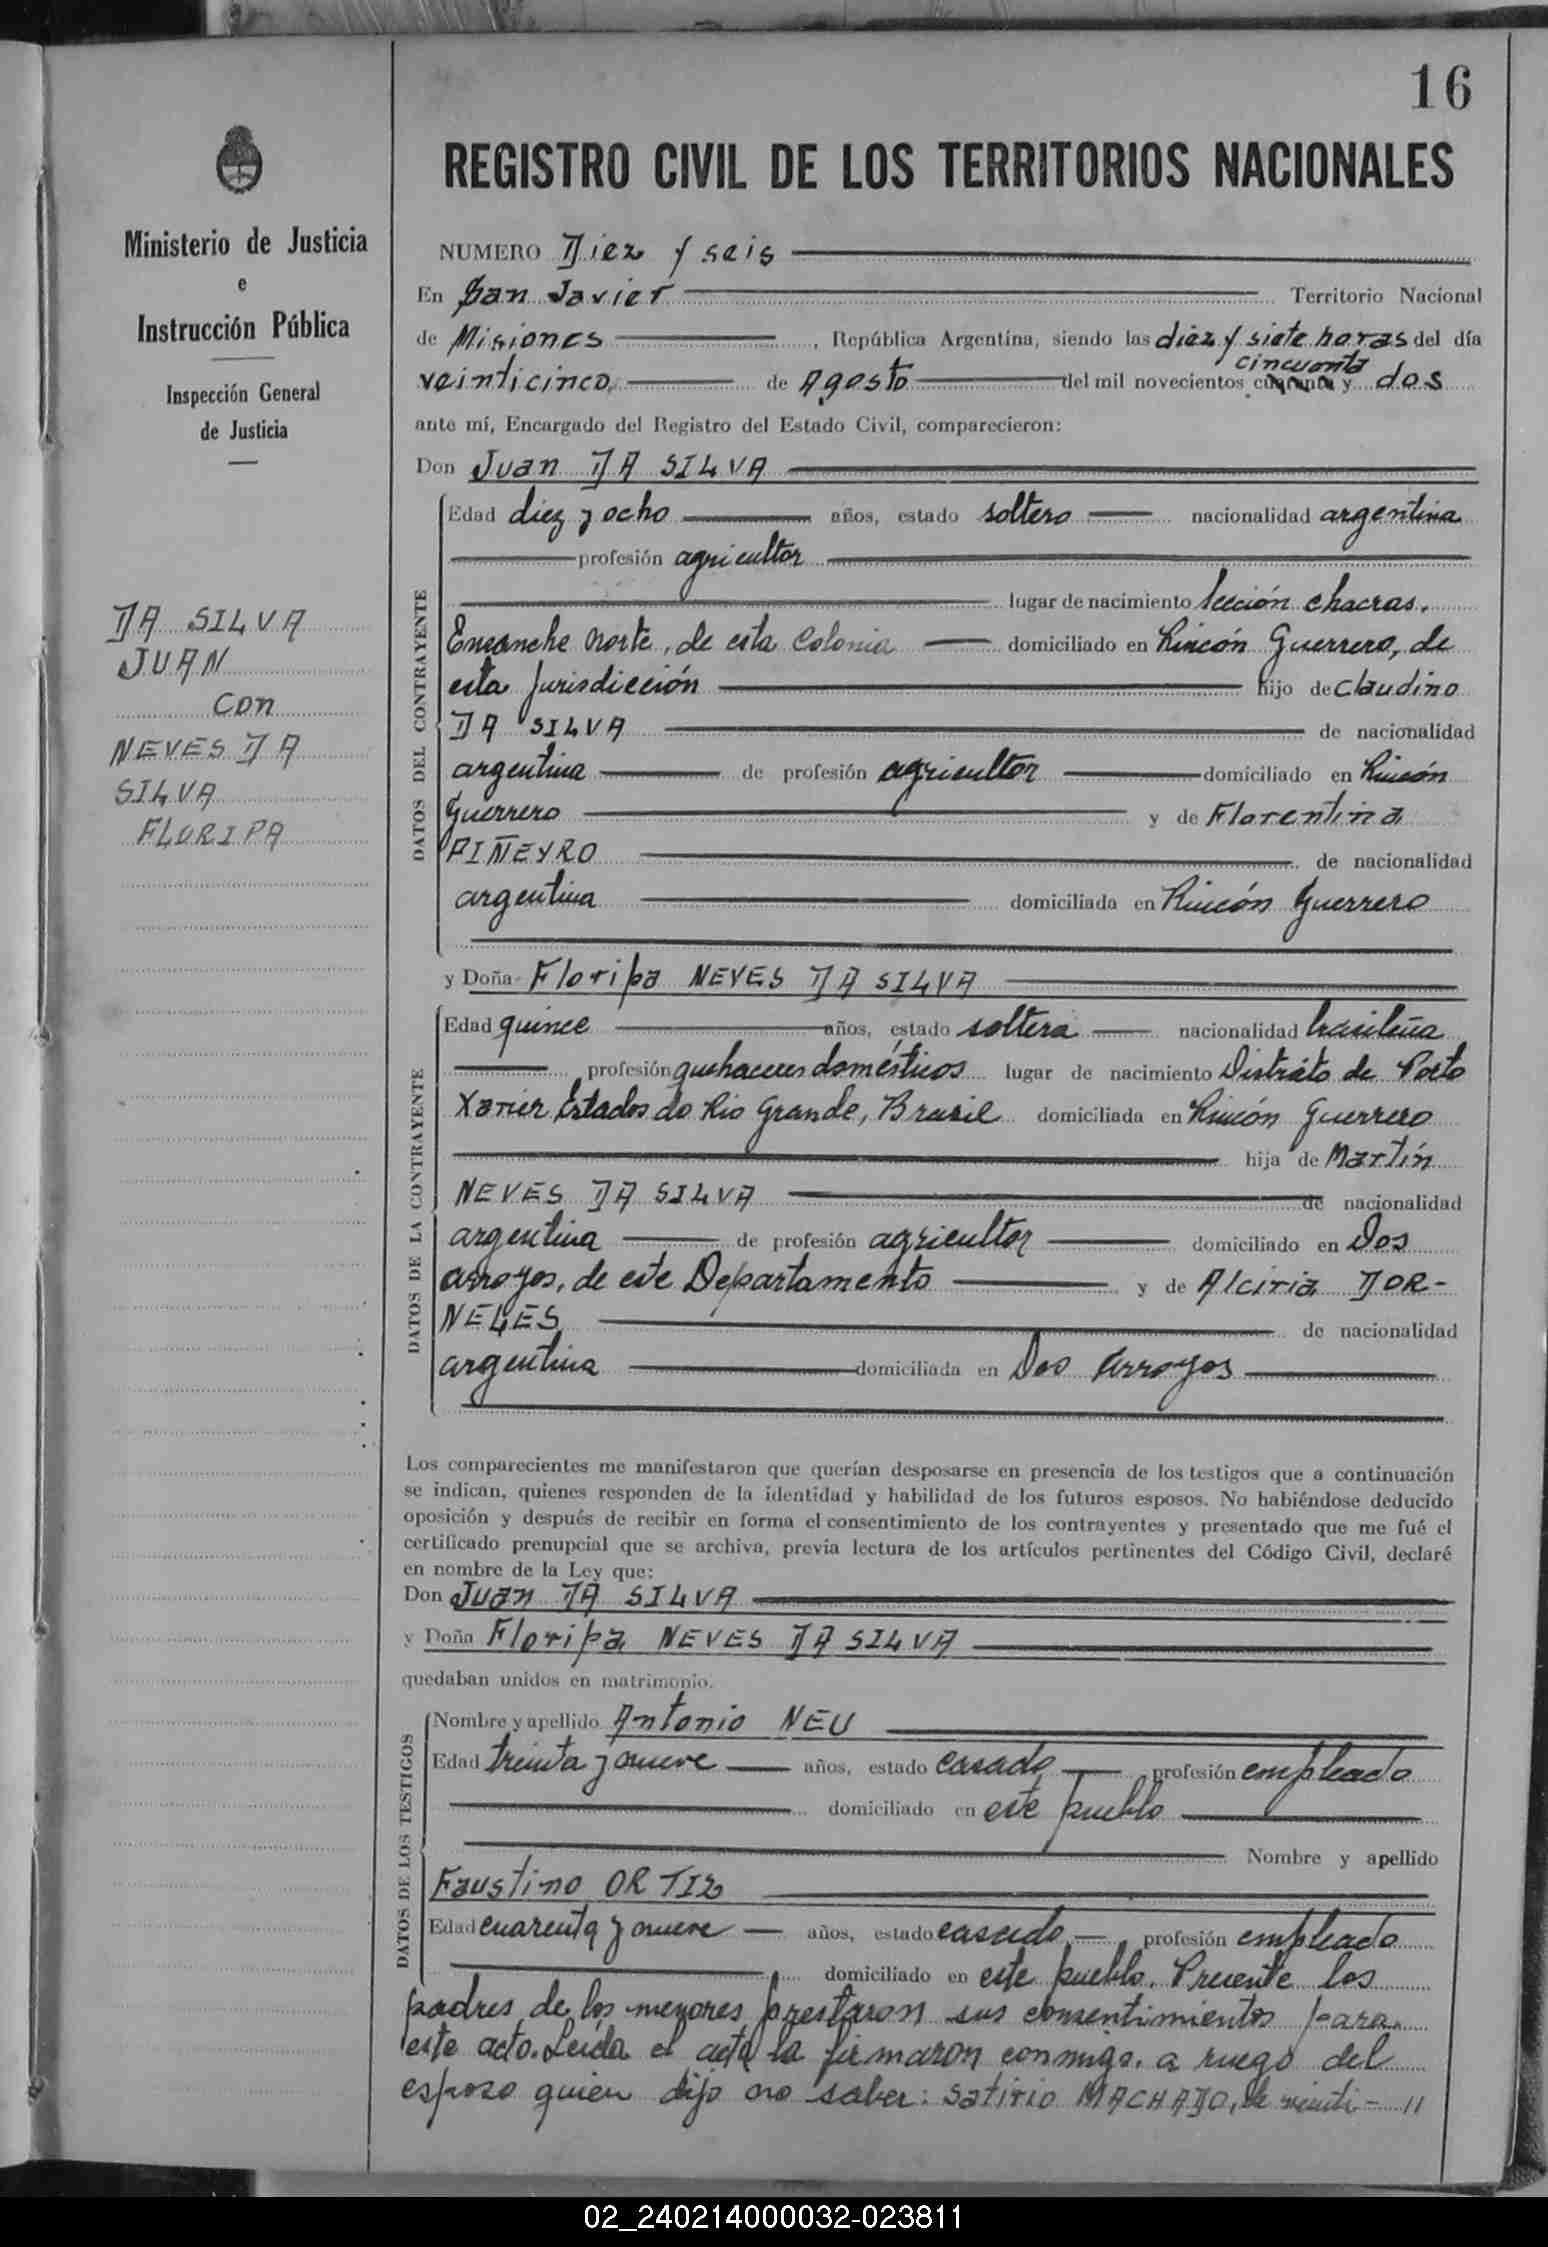 16
REGISTRO CIVIL DE LOS TERRITORIOS NACIONALES
Ministerio de Justicia
e
Instrucción Pública
Inspección General
de Justicia
DA SILVA
JUAN
con
NEVES DA
SILVA
FLORIPA
NUMERO Diez y seis
En San Javier Territorio Nacional
de Misiones, República Argentina, siendo las diez y siete horas del día
cincuenta
veinticinco de Agosto del mil novecientos cuarenta y dos
ante mí, Encargado del Registro del Estado Civil, comparecieron:
Don Juan DA SILVA
DATOS DEL CONTRAYENTE
Edad diez y ocho años, estado soltero nacionalidad argentina
profesión agricultor
lugar de nacimiento Sección chacras,
Ensanche norte, de esta Colonia domiciliado en Rincón Guerrero, de
esta Jurisdicción hijo de Claudino
DA SILVA de nacionalidad
argentina de profesión agricultor domiciliado en Rincón
Guerrero y de Florentina
PIÑEYRO de nacionalidad
argentina domiciliada en Rincón Guerrero
y Doña Floripa NEVES DA SILVA
DATOS DE LA CONTRAYENTE
Edad quince años, estado soltera nacionalidad brasileña
profesión quehaceres domésticos lugar de nacimiento Distrito de Porto
Xavier Estados do Rio Grande, Brasil domiciliada en Rincón Guerrero
hija de Martín
NEVES DA SILVA de nacionalidad
argentina de profesión agricultor domiciliado en Dos
arroyos, de este Departamento y de Alciria DOR-
NELES de nacionalidad
argentina domiciliada en Dos Arroyos
Los comparecientes me manifestaron que querían desposarse en presencia de los testigos que a continuación
se indican, quienes responden de la identidad y habilidad de los futuros esposos. No habiéndose deducido
oposición y después de recibir en forma el consentimiento de los contrayentes y presentado que me fué el
certificado prenupcial que se archiva, previa lectura de los artículos pertinentes del Código Civil, declaré
en nombre de la Ley que:
Don Juan DA SILVA
y Doña Floripa NEVES DA SILVA
quedaban unidos en matrimonio.
DATOS DE LOS TESTIGOS
Nombre y apellido Antonio NEU
Edad treinta y nueve años, estado casado profesión empleado
domiciliado en este pueblo
Nombre y apellido
Faustino ORTIZ
Edad cuarenta y nueve años, estado casado profesión empleado
domiciliado en este pueblo. Presente los
padres de los menores prestaron sus consentimientos para
este acto. Leída el acta la firmaron conmigo, a ruego del
esposo quien dijo no saber: Satirio MACHADO, de veinti- "
02_240214000032-023811